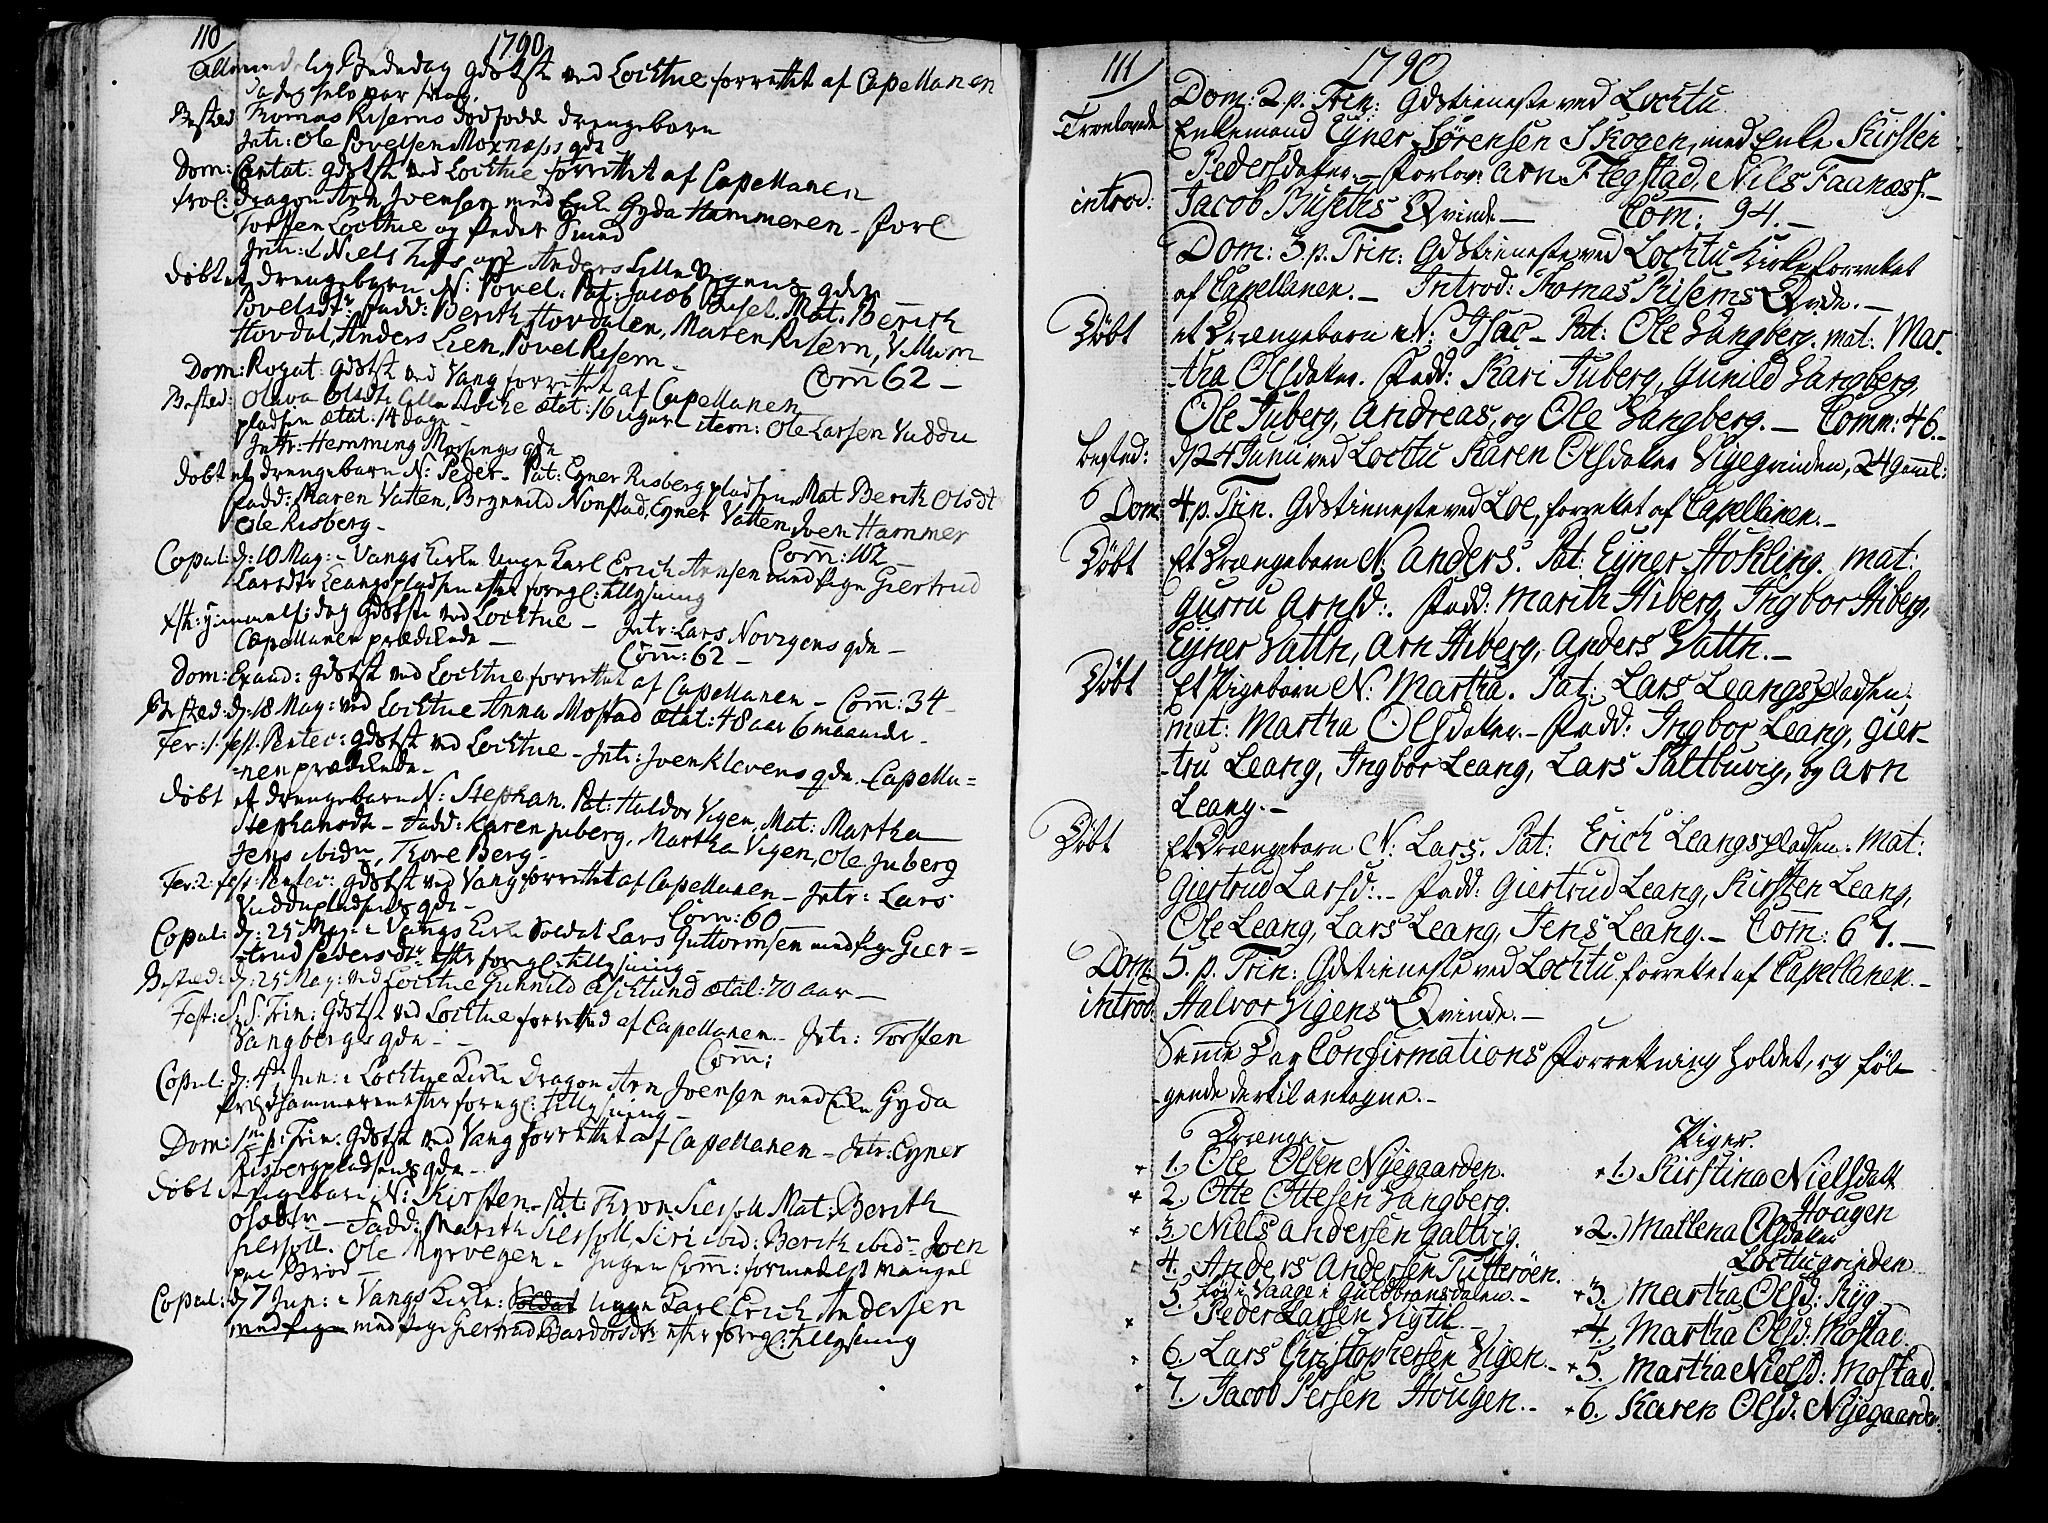 110
1790
Allmindelig Bededag gdstst ved Lochtue forrettet af Capellanen
da jeg selv var
Bested Thomas Risems dødfødde drengebarn
Intr: Ole Povelsen Moxnæss qde
Dom: Cantat: gdstst ved Lochtue forrettet af Capellanen
trol: Dragon Arn Joensen med Enke Gyda Hammeren - Forl
Torsten Lochtue og Peder Smed
Intr: Niels og Anders Lille Vigens qder
døbt et drengebarn N: Povel. Pat: Jacob Buset. Mat: Berith
Povelsdtr. fadd: Berith Hovdalen, Maren Risem, Villum
Hovdal, Anders Lien, Povel Risem -
Dom: Rogat: gdstst ved Vang forrettet af Capellanen Com 62 -
Bested: Olava Olsdtr Lille ætat: 16 uger item: Ole Larsen Vuddu
pladsen ætat: 14 dage -
Intr: Hemming Mossings qde
døbt et drengebarn N: Peder - Pat: Eyner Risberg pladsen Mat Berith Olsdt
fadd: Maren Vatten, Brynild Nonstad, Eyner Vatten, Iven Hammer
Ole Risberg - Com: 102 -
Copul: d: 10 May: i Vangs Kirke unge Karl Erich Arnsen med Pige Giertrud
Larsdtr Leangspladsen efter foregl: tillysning
Xsti Himmelf: dag gdstst ved Lochtue - Intr: Lars Novigens qde -
Capellanen prædikede - Com: 62 -
Dom: Exaud: gdstst ved Lochtue forrettet af Capellanen - Com: 34 -
Bested: d: 18 May: ved Lochtue Anna Mostad ætat: 48 aar 6 maaneder -
Fer: 1. fest: Pentec: gdstst ved Lochtue - Intr: Joen Klevens qde. Capella=
=nen prædikede -
døbt et drengebarn N: Stephan. Pat: Haldor Vigen, Mat: Martha
Stephansdtr - Fadd: Karen Juberg, Martha Vigen, Ole Juberg
Jens ibidm, Thore Berg -
Fer: 2: fest: Pentec: gdstst ved Vang forrettet af Capellanen - Intr: Lars
Vuddupladsens qde - Com: 60
Copul: d: 25 May: i Vangs Kirke Soldat Lars Guttormsen med Pige Gier=
=trud Pedersdtr efter foregl: tillysning -
Bested: d: 25 May: ved Lochtue Gunnild Asklund ætat: 70 Aar -
Fest: S: S: Trin: gdstst ved Lochtue forretted af Capellanen - Intr: Torsten
Sangbergs qde - - Com:
Copul: d: 4de Jun: i Lochtue Kirke Dragon Arn Joensen med Enke Gyda
Hammeren efter foregl: tillysning -
Dom: 1me p: Trin: gdstst ved Vang forrettet af Capellanen - Intr: Eyner
Risbergpladsens qde -
døbt et pigebarn N: Kirsten. Pat: Thron Mat: Berith
Olsdtr - Fadd: Marith Siri ibid: Berith ibidm Joen
Ole Myrvegen - Ingen Com: formedelst Mangel
paa Brød -
Copul: d 7 Jun: i Vangs Kirke: Soldat unge Karl Erich Andersen
med Pige med Pige Giertrud Bardorsdtr efter foregl: tillysning
111
1790
Dom: 2. p. Trin: Gdstieneste ved Lochtu
Troelovede Enkemand Ejner Sørensen Skogen, med Enke Kirsten
Pedersdatter. - Forlov: Arn Flegstad, Nils Faanæss. -
introd: Jacob Busetes Qvinde. - Com: 94. -
Dom: 3. p. Trin: Gdstieneste ved Lochtu Kirke forrettet
af Capellanen. - Introd: Thomas Risems Qvde. -
Døbt et Drængebarn N: Isac - Pat: Ole Sangberg. mat: Mar-
tha Olsdatter. Fadd: Kari Juberg, Gunild Sangberg,
Ole Juberg, Andreas, og Ole Sangberg. - Comm: 46. -
bested: d: 24 Junii ved Lochtu Karen Olsdatter Vigegrinden, 24 gaml:
Dom: 4. p. Trin. Gdstieneste ved Loe, forrettet af Capellanen. -
Døbt Et Drængebarn N: Anders. Pat: Ejner Hokling. mat:
Gurru Arnsd:. Fadd: Marith Hiberg, Ingbor Hiberg,
Ejner Vattn, Arn Hiberg, Anders Vattn. -
Døbt Et Pigebarn N: Martha. Pat: Lars Leangspladsen.
mat: Martha Olsdatter. - Fadd: Ingbor Leang, Gier-
-tru Leang, Ingbor Leang, Lars Saltbuvig, og Arn
Leang. -
Døbt Et Drængebarn N: Lars. Pat: Erich Leangspladsen. Mat:
Giertrud Larsd:. - Fadd: Giertrud Leang, Kirsten Leang,
Ole Leang, Lars Leang, Jens Leang. - Com: 67. -
Dom: 5. p. Trin: Gdstieneste ved Lochtu forrettet af Capellanen. -
introd: Halvor Vigens Qvinde. -
Samme Dag Confirmations Forretning holdet, og føl-
-gende dertil antagne. -
Drænge
1. Ole Olsen Nijegaarden.
2. Otte Ottesen Sangberg.
3. Niels Andersen Galtvig.
4. Anders Andersen Tutterøen.
fød i Vaage i Guldbransdalen. -
5. Peder Larsen Vigtil. -
6. Lars Christophersen Vigen. -
7. Jacob Persen Hougen. -
Piger
1. Kirstina Nielsdatt
Hougen
2. Mallena Olsdatter
Lochtugrinden
3. Martha Olsd: Ryg
4. Martha Olsd: Mostad.
5. Martha Nielsd: Mostad.
6. Karen Olsd: Nijegaarden.